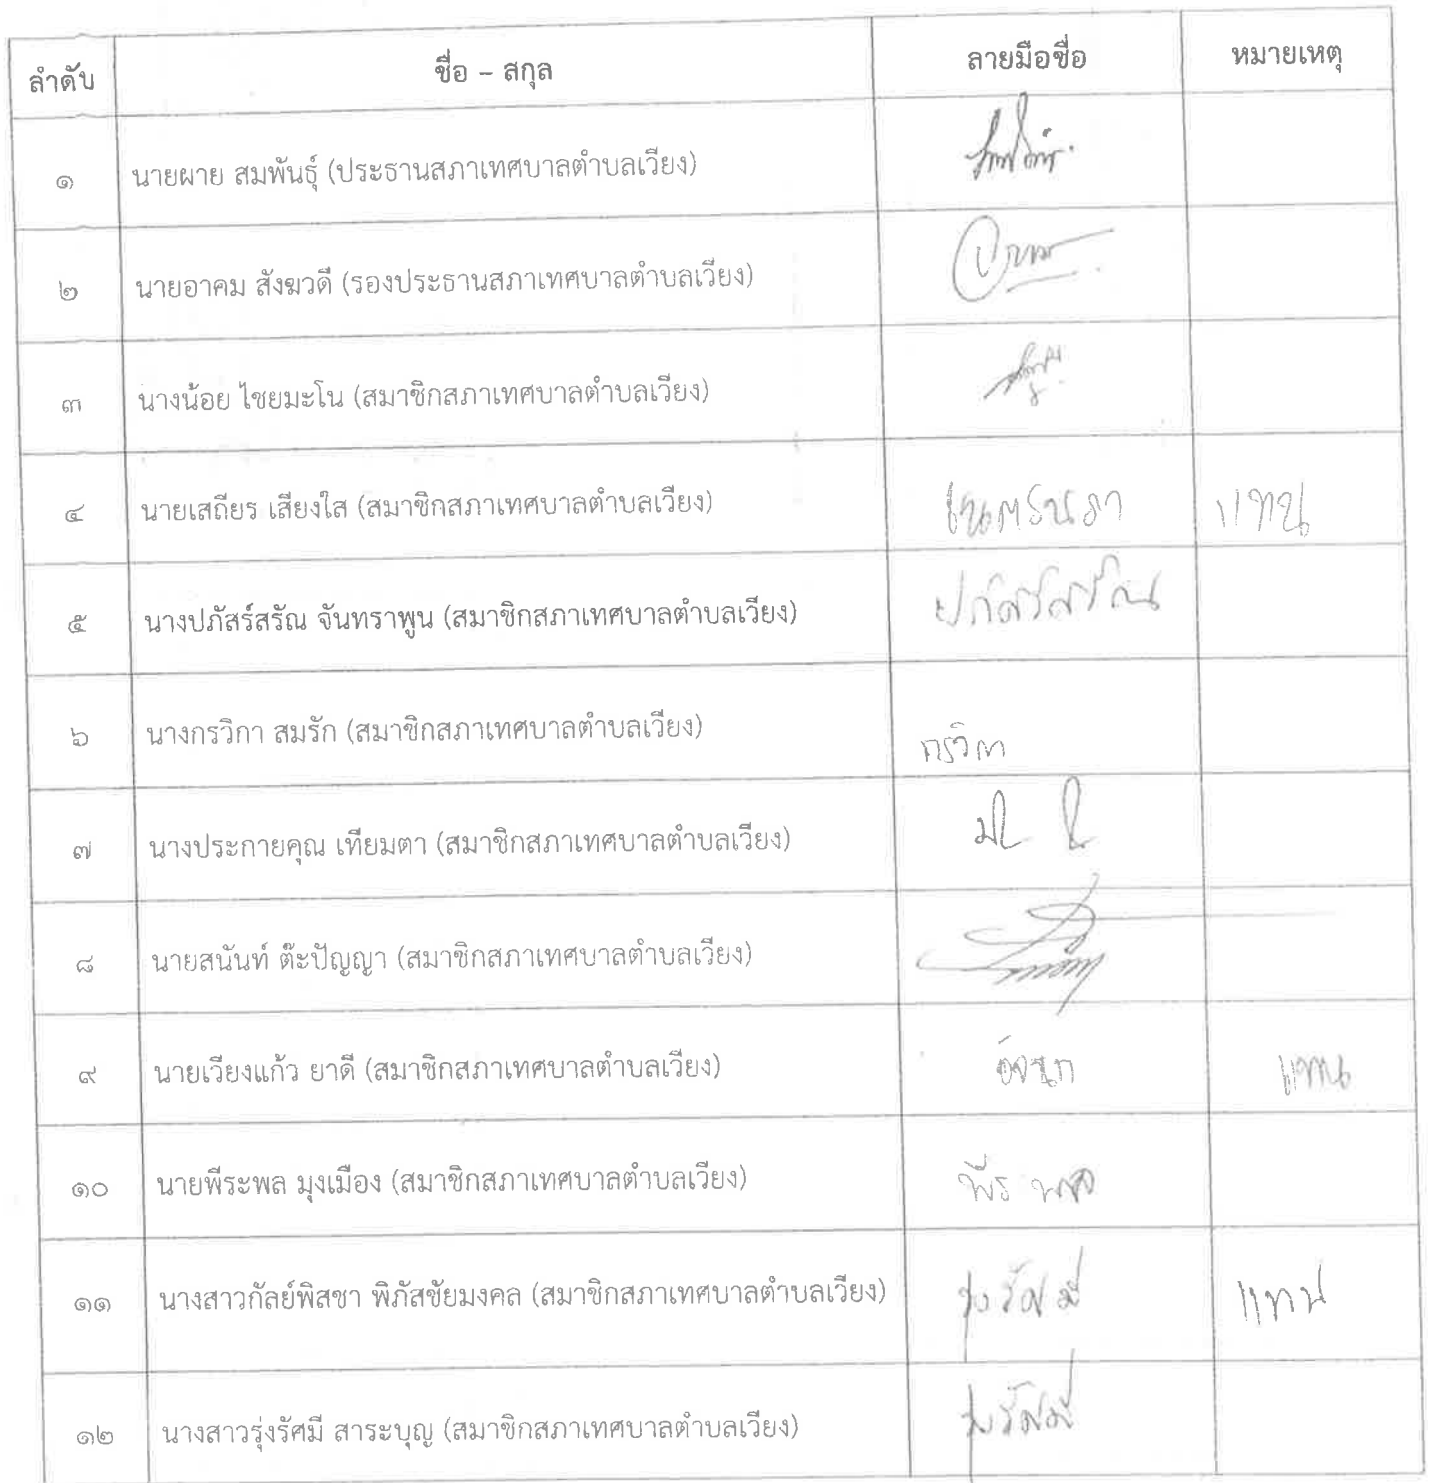 ลำดับ ชื่อ – สกุล ลายมือชื่อ หมายเหตุ
๑ นายผาย สมพันธุ์ (ประธานสภาเทศบาลตำบลเวียง)
๒ นายอาคม สังฆวดี (รองประธานสภาเทศบาลตำบลเวียง)
๓ นางน้อย ไชยมะโน (สมาชิกสภาเทศบาลตำบลเวียง)
๔ นายเสถียร เสียงใส (สมาชิกสภาเทศบาลตำบลเวียง) แทน
๕ นางปภัสร์สรัณ จันทราพูน (สมาชิกสภาเทศบาลตำบลเวียง) ปภัสร์สรัณ
๖ นางกรวิกา สมรัก (สมาชิกสภาเทศบาลตำบลเวียง) กรวิกา
๗ นางประกายคุณ เทียมตา (สมาชิกสภาเทศบาลตำบลเวียง)
๘ นายสนันท์ ต๊ะปัญญา (สมาชิกสภาเทศบาลตำบลเวียง)
๙ นายเวียงแก้ว ยาดี (สมาชิกสภาเทศบาลตำบลเวียง) แทน
๑๐ นายพีระพล มุงเมือง (สมาชิกสภาเทศบาลตำบลเวียง) พีระพล
๑๑ นางสาวกัลย์พิสชา พิภัสชัยมงคล (สมาชิกสภาเทศบาลตำบลเวียง) รุ่งรัศมี แทน
๑๒ นางสาวรุ่งรัศมี สาระบุญ (สมาชิกสภาเทศบาลตำบลเวียง) รุ่งรัศมี